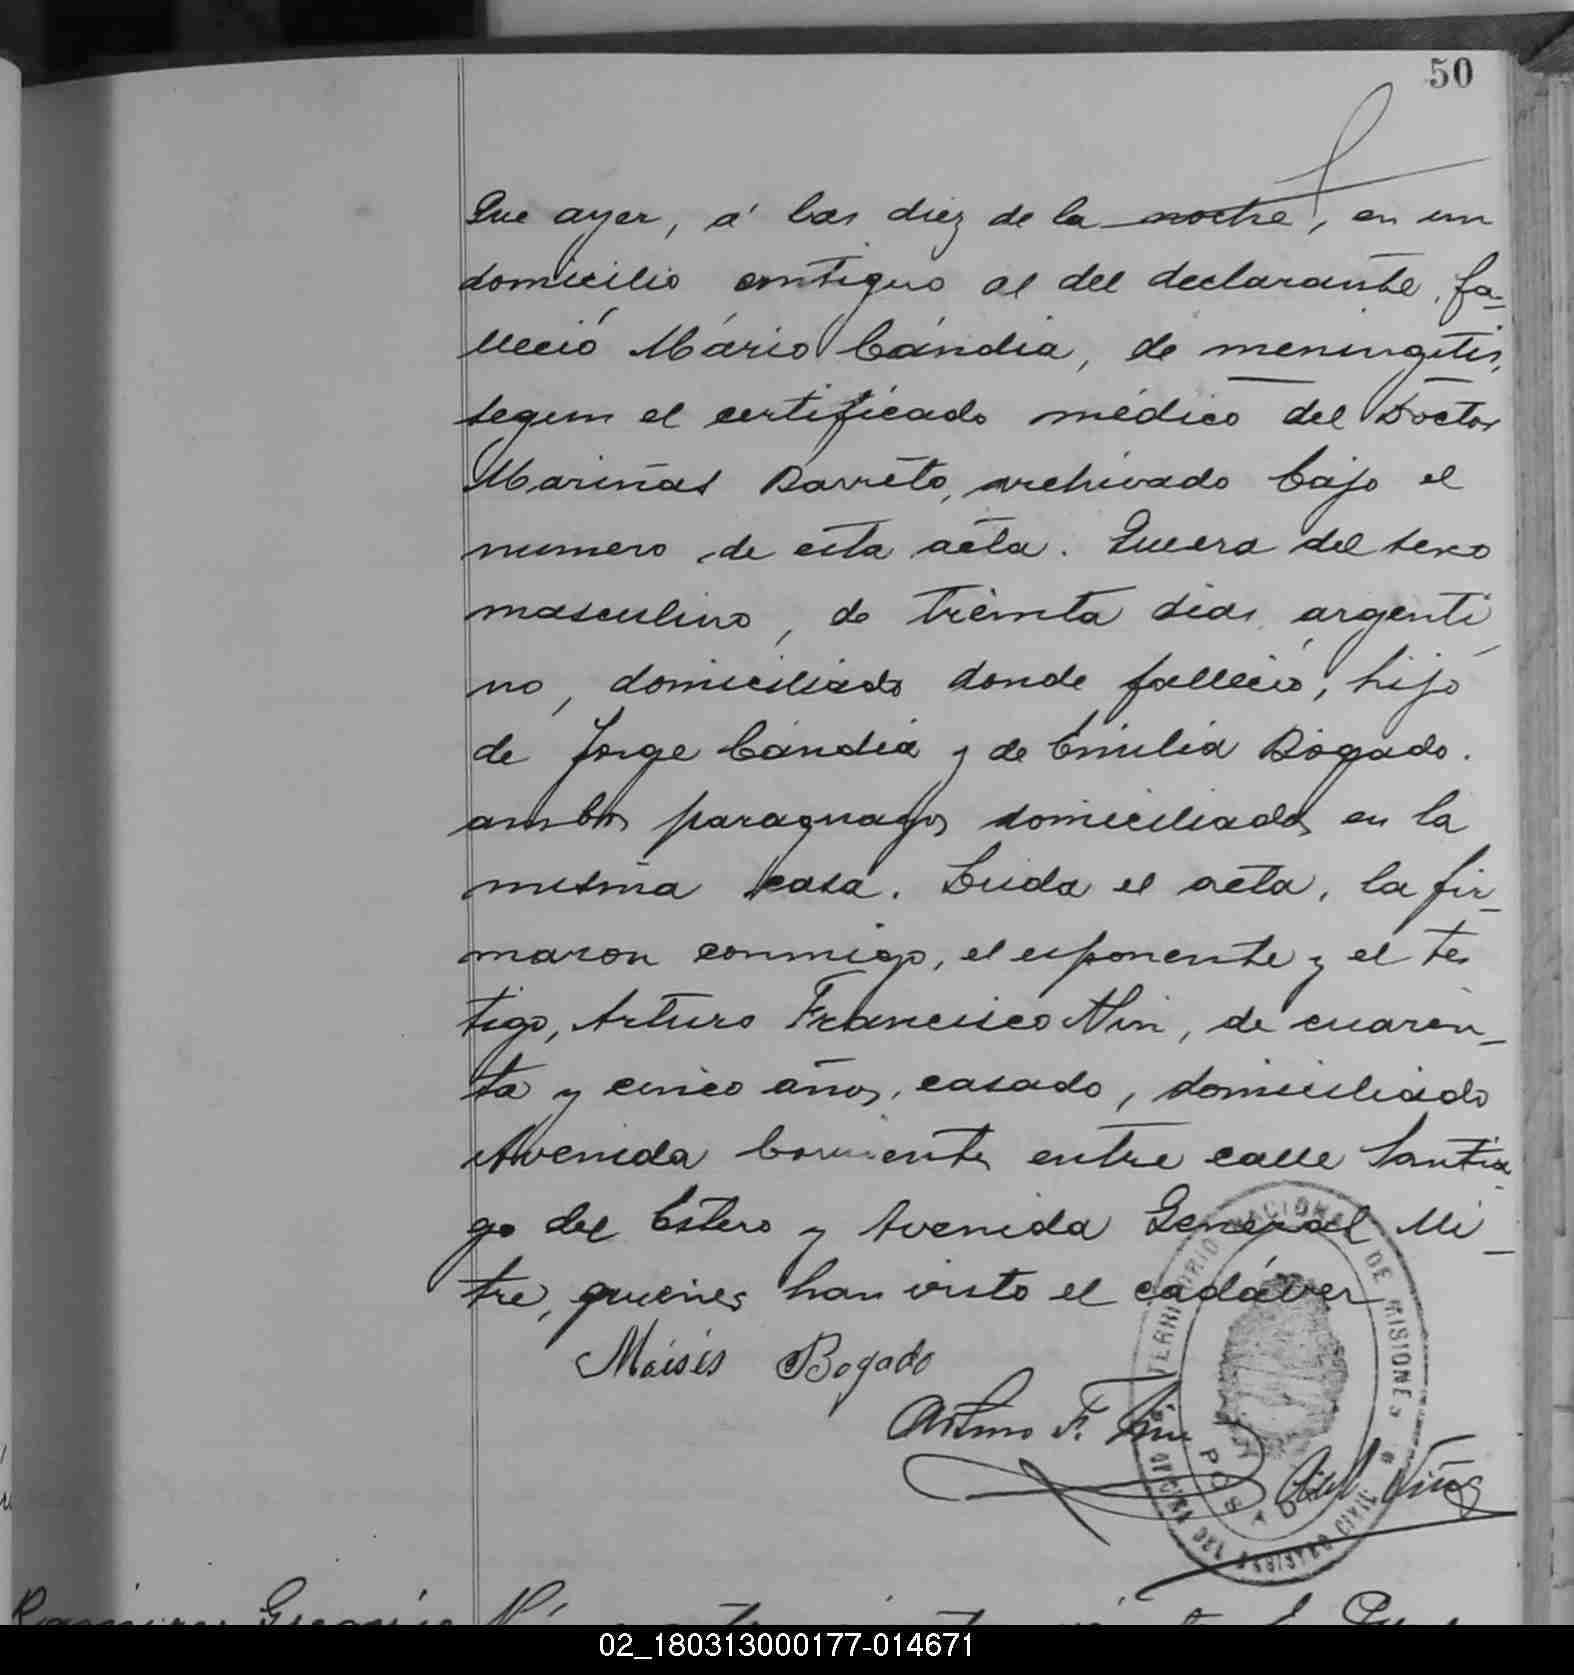 50
Que ayer, á las diez de la noche, en un
domicilio contiguo al del declarante, fa-
lleció Mário Cándia, de meningitis,
segun el certificado médico del Doctor
Mariñas Barreto, archivado bajo el
numero de esta acta. Que era del sexo
masculino, de treinta dias, argenti
no, domiciliado donde falleció, hijo
de Jorge Cándia y de Emilia Bogado.
ambos paraguayos domiciliados en la
misma casa. Leida el acta, la fir-
maron conmigo, el esponente y el tes
tigo, Arturo Francisco Nin, de cuaren-
ta y cinco años, casado, domiciliado
Avenida Corrientes entre calle Santia-
go del Estero y Avenida General Mi-
tre, quienes han visto el cadáver
Moisés Bogado
Arturo F. Nin
TERRITORIO NACIONAL DE MISIONES
OFICINA DEL REGISTRO CIVIL
POSADAS
Ramirez
02_180313000177-014671